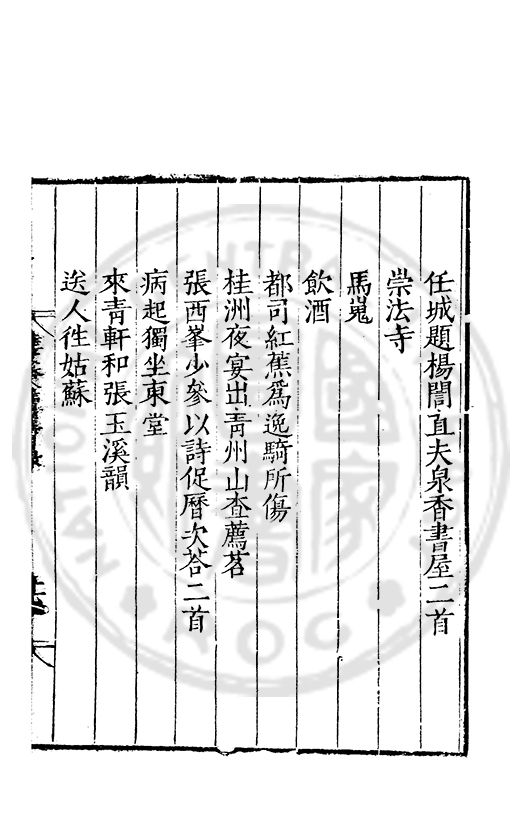 任城題楊誾直夫泉香書屋二首
崇法寺
馬嵬
飲酒
都司紅蕉為逸騎所傷
桂洲夜宴出青州山查薦茗
張西峯少參以詩促曆次荅二首
病起獨坐東堂
來青軒和張玉溪韻
送人徃姑蘇